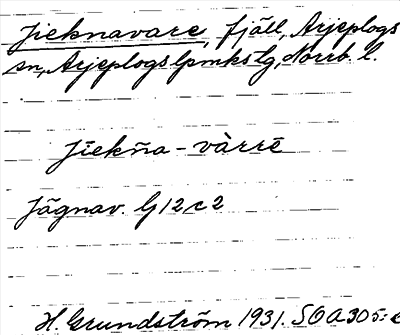 Jieknavare, fjäll, Arjeplogs
sn, Arjeplogs lpmkstg, Norrb. l.
jīekńa - vàrrē
Jägnav. G12c2
H. Grundström 1931. SOA 305: